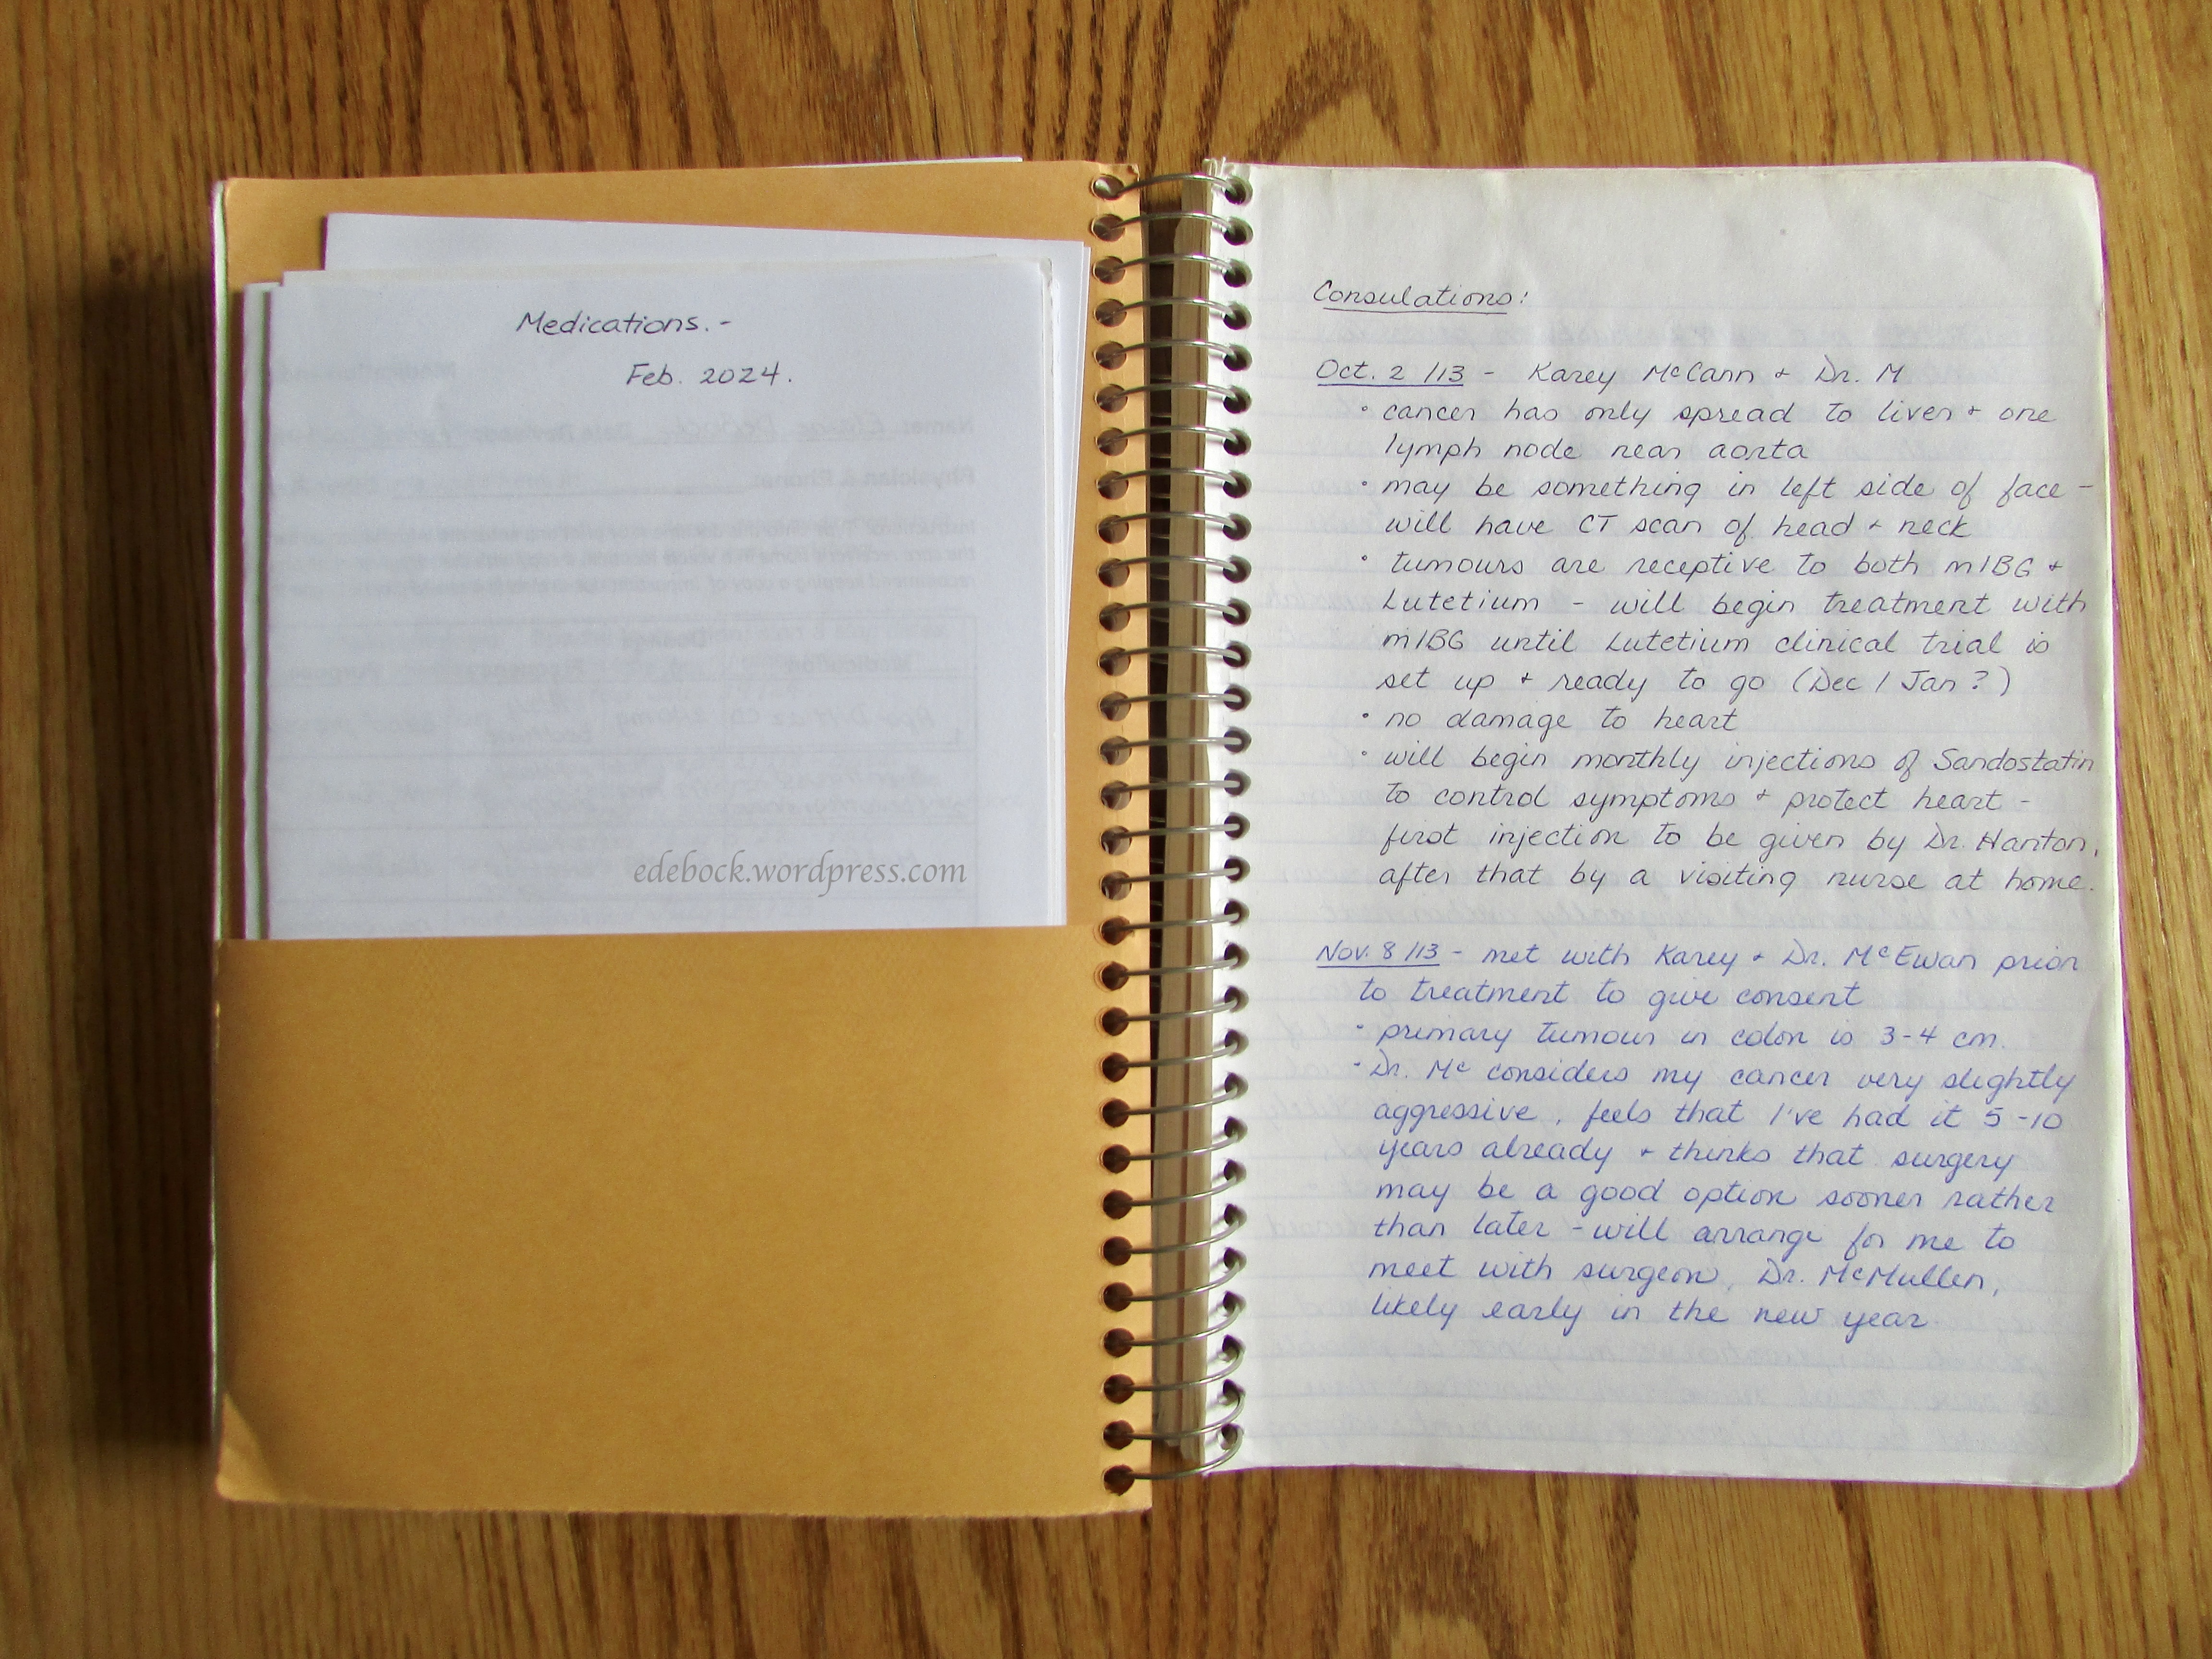 Medications.-
Feb. 2024.
edebock.wordpress.com
Consulations:
Oct. 2 /13 - Karey McCann + Dr. M
• cancer has only spread to liver + one
lymph node near aorta
• may be something in left side of face -
will have CT scan of head + neck
• tumours are receptive to both mIBG +
Lutetium - will begin treatment with
mIBG until Lutetium clinical trial is
set up + ready to go (Dec / Jan?)
• no damage to heart
• will begin monthly injections of Sandostatin
to control symptoms + protect heart -
first injection to be given by Dr. Hanton,
after that by a visiting nurse at home.
Nov. 8 /13 - met with Karey + Dr. McEwan prior
to treatment to give consent
• primary tumour in colon is 3-4 cm.
• Dr. Mc considers my cancer very slightly
aggressive, feels that I've had it 5-10
years already + thinks that surgery
may be a good option sooner rather
than later - will arrange for me to
meet with surgeon, Dr. McMullen,
likely early in the new year